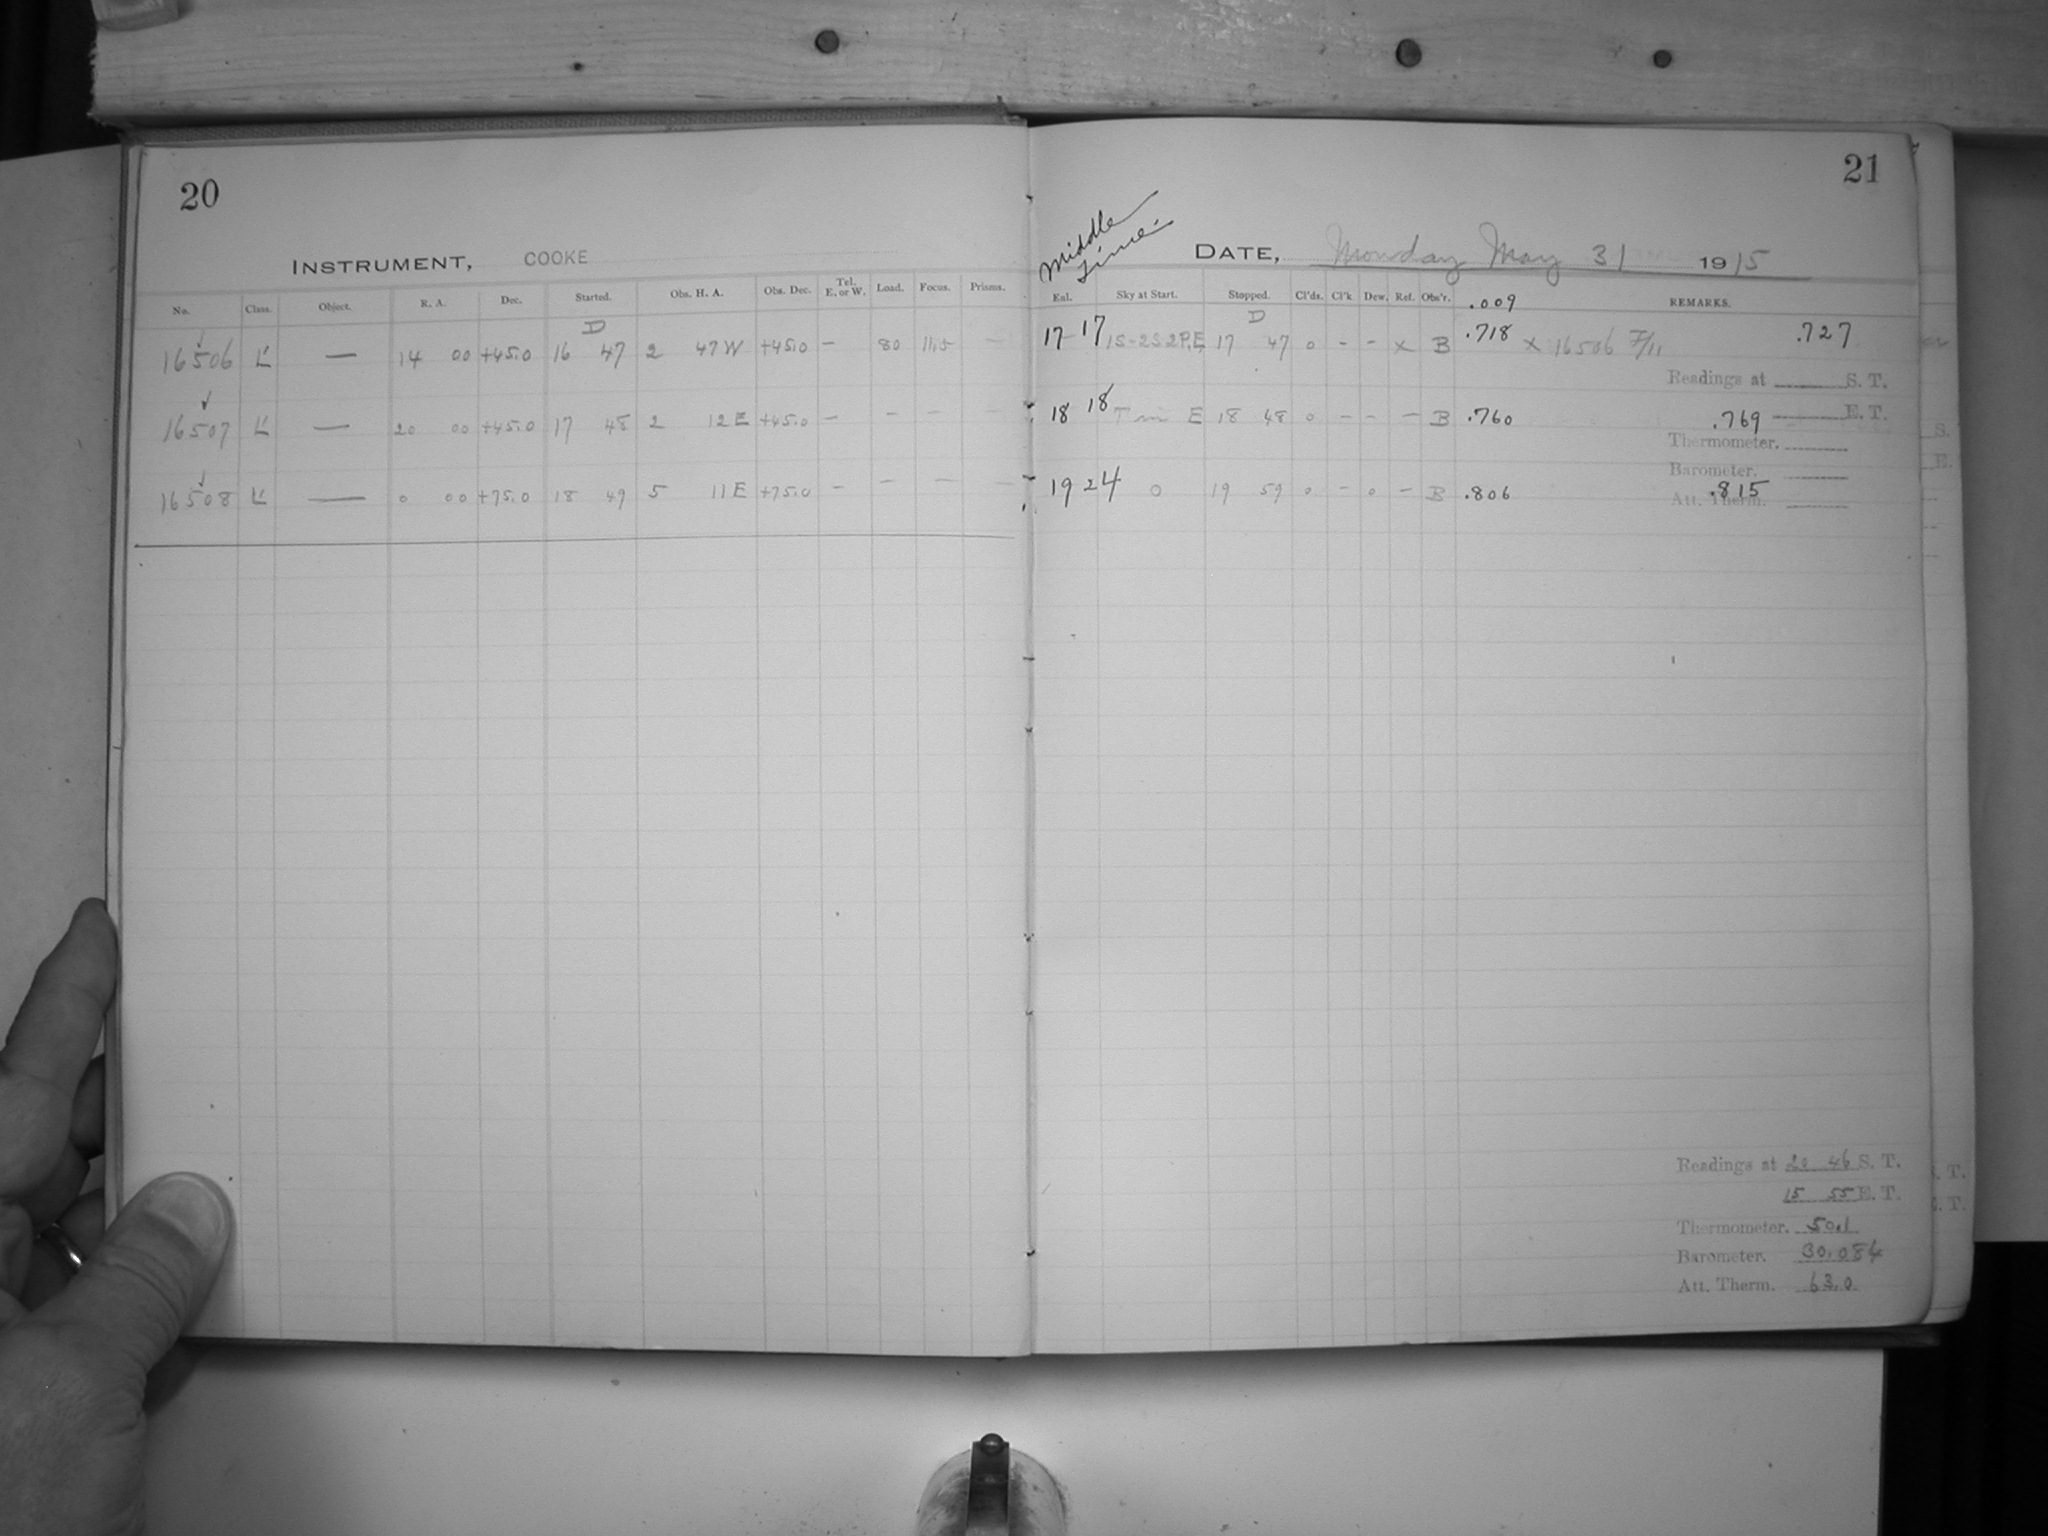 20
INSTRUMENT, COOKE
No. Class. Object. R. A. Dec. Started. Obs. H. A. Obs. Dec. Tel. E. or W. Load. Focus. Prisms.
D
16506 L' — 14 00 +45.0 16 47 2 47 W +45.0 — 80 11.5 —
16507 L' — 20 00 +45.0 17 48 2 12 E +45.0 — — — —
16508 L' — 0 00 +75.0 18 49 5 11 E +75.0 — — — —
21
Middle Time
DATE, Monday May 31 1915
Enl. Sky at Start. Stopped. Cl'ds. Cl'k. Dew. Ref. Obs'r. .009 REMARKS.
D
17 17 1S-2S2P,E 17 47 0 - - x B .718 x 16506 7/11 .727
Readings at S. T.
18 18 E 18 48 0 - - - B .760 .769 E. T.
Thermometer.
Barometer.
19 24 0 19 59 0 - 0 - B .806 .815
Att. Therm.
Readings at 20 46 S. T.
15 55 E. T.
Thermometer. 50.1
Barometer. 30.084
Att. Therm. 63.0